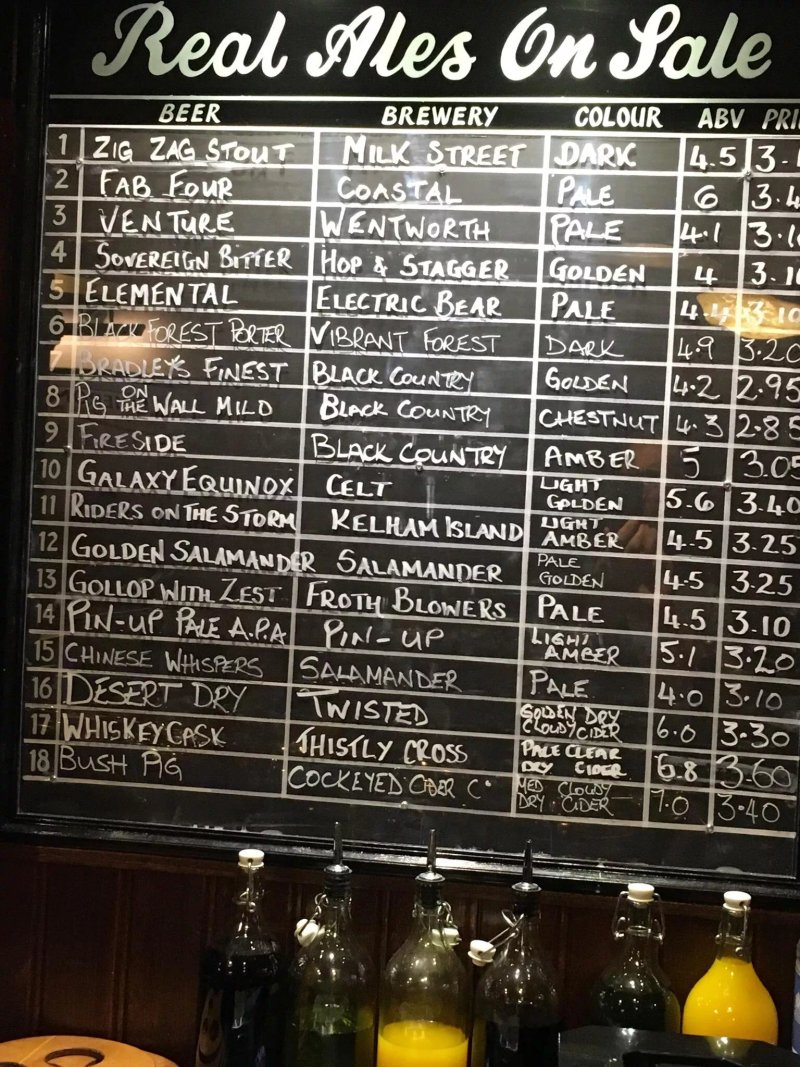 Real Ales On Sale
BEER BREWERY COLOUR ABV
1 ZIG ZAG STOUT MILK STREET DARK 4.5
2 FAB FOUR COASTAL PALE 6
3 VENTURE WENTWORTH PALE 4.1
4 SOVEREIGN BITTER HOP & STAGGER GOLDEN 4
5 ELEMENTAL ELECTRIC BEAR PALE 4.4 3.10
6 BLACK FOREST PORTER VIBRANT FOREST DARK 4.9 3.20
7 BRADLEY'S FINEST BLACK COUNTRY GOLDEN 4.2 2.95
8 PIG ON THE WALL MILD BLACK COUNTRY CHESTNUT 4.3 2.85
9 FIRESIDE BLACK COUNTRY AMBER 5 3.05
10 GALAXY EQUINOX CELT LIGHT GOLDEN 5.6 3.40
11 RIDERS ON THE STORM KELHAM ISLAND LIGHT AMBER 4.5 3.25
12 GOLDEN SALAMANDER SALAMANDER PALE GOLDEN 4.5 3.25
13 GOLLOP WITH ZEST FROTH BLOWERS PALE 4.5 3.10
14 PIN-UP PALE A.P.A PIN-UP LIGHT AMBER 5.1 3.20
15 CHINESE WHISPERS SALAMANDER PALE 4.0 3.10
16 DESERT DRY TWISTED GOLDEN DRY CLOUDY CIDER 6.0 3.30
17 WHISKEY CASK THISTLY CROSS PALE CLEAR DRY CIDER 6.8 3.60
18 BUSH PIG COCKEYED CIDER Co MED CLOUDY DRY CIDER 7.0 3.40